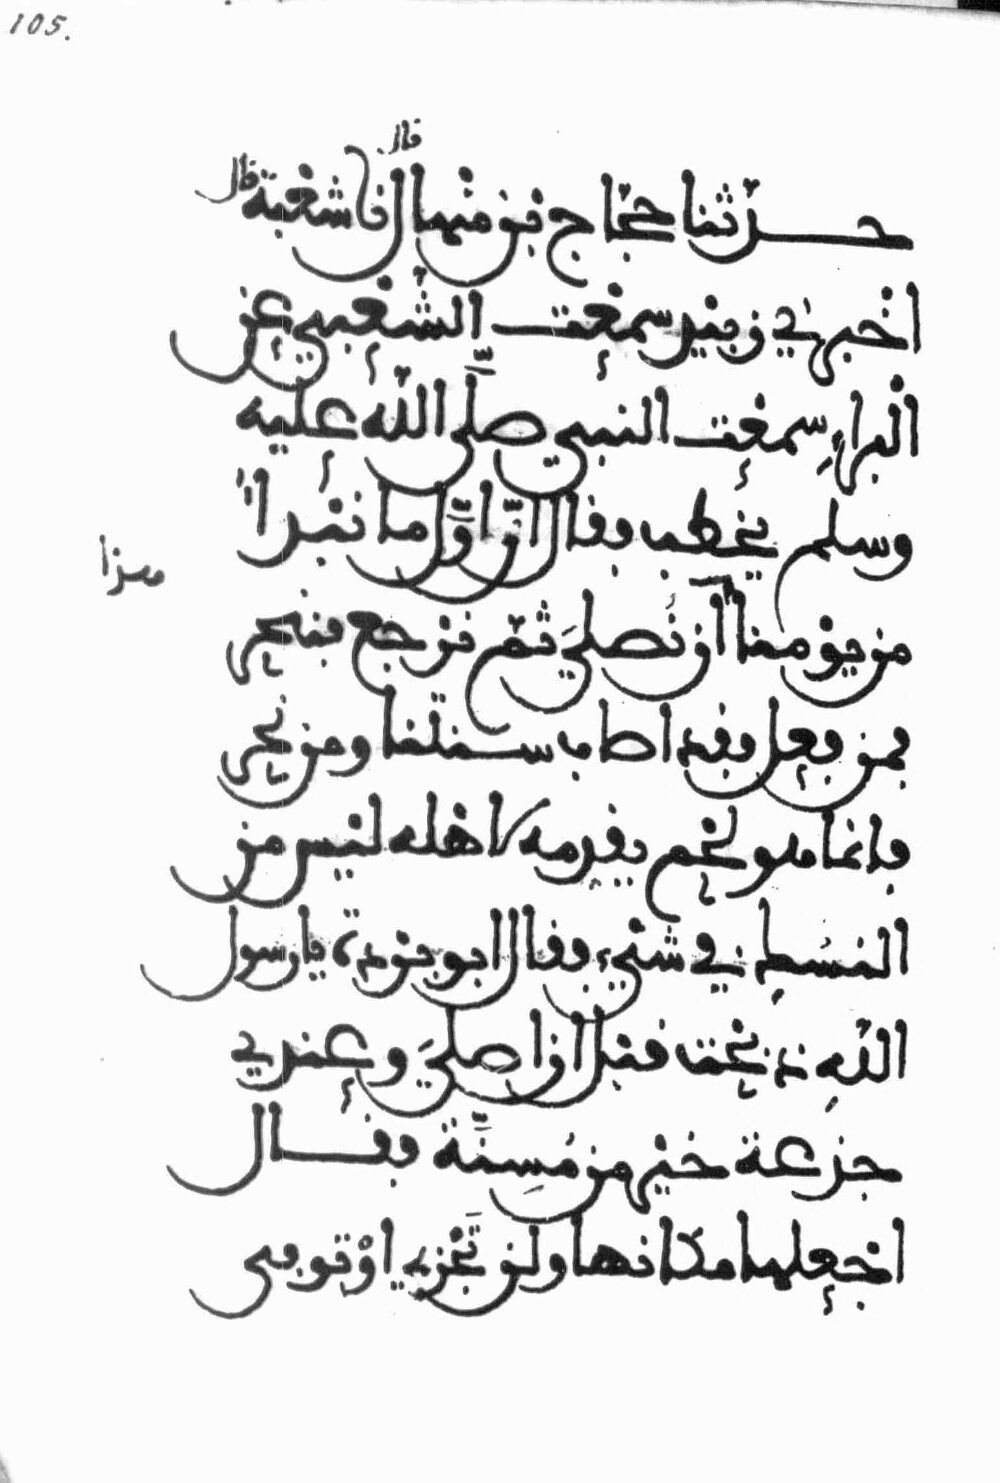 105.
قال
حدثنا حجاج بن منهال نا شعبة قال
اخبرني زبيد سمعت الشعبي عن
البراء سمعت النبي صلى الله عليه
وسلم يخطب فقال ان اول ما نبدا
هذا
من يومنا ان نصلي ثم نرجع فننحر
فمن فعل فقد اصاب سنتنا ومن نحر
فانما هو لحم يقدمه لاهله ليس من
النسك في شيء فقال ابو بردة يا رسول
الله ذبحت قبل ان اصلي وعندي
جذعة خير من مسنة فقال
اجعلها مكانها ولن تجزي او توفي